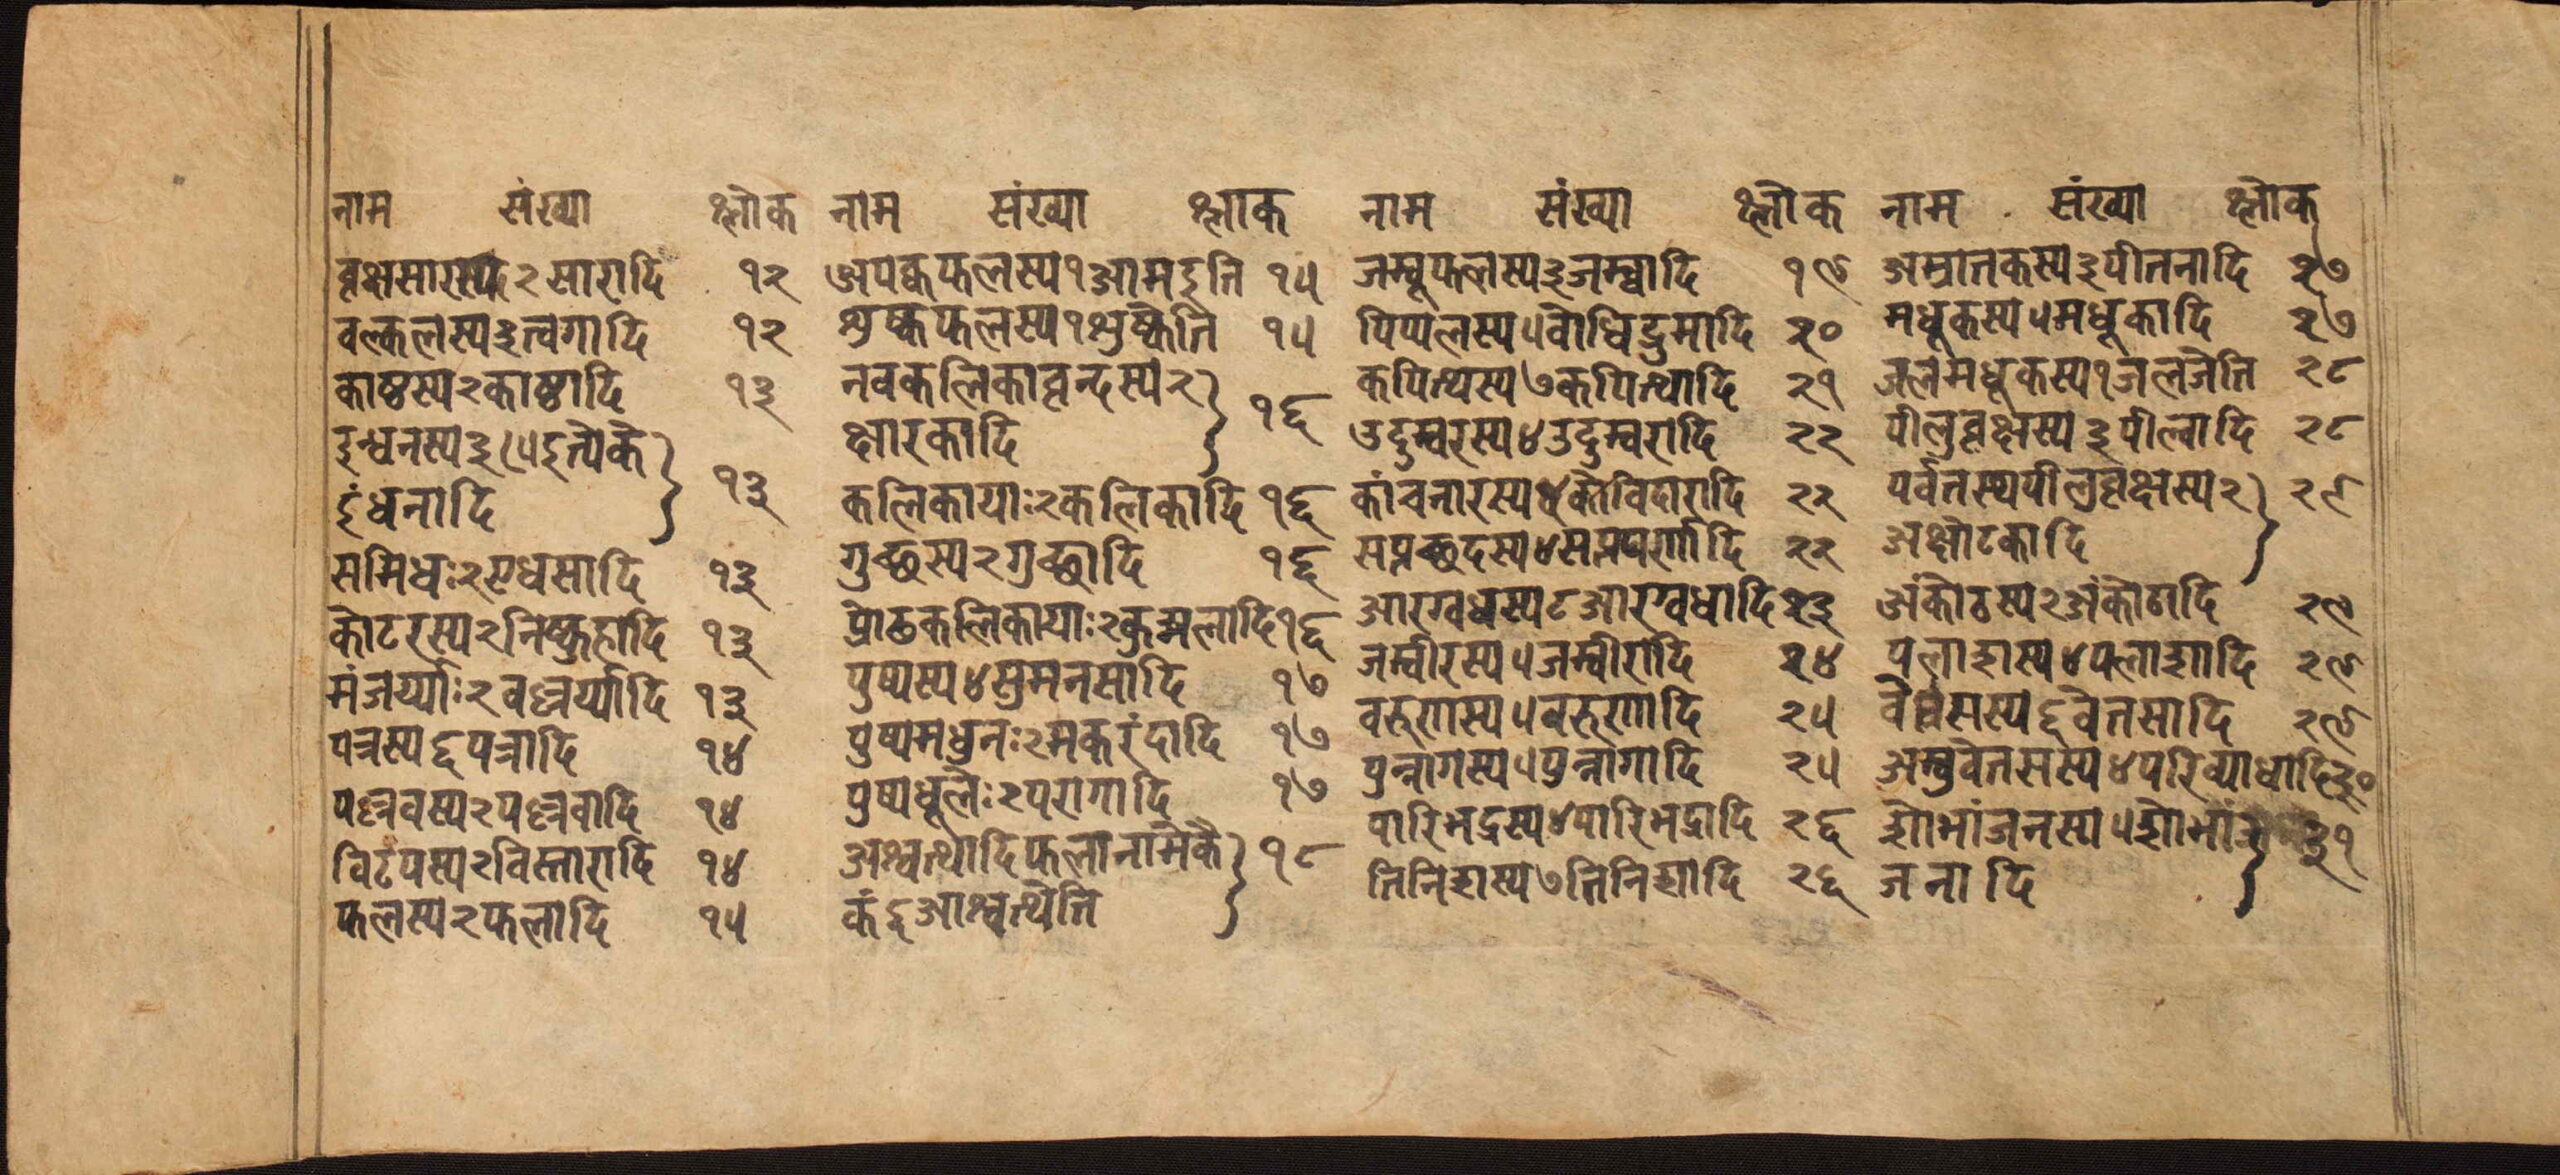 नाम संख्या श्लोक
वृक्षसारस्य २ सारादि १२
वल्कलस्य ३ त्वगादि १२
काष्ठस्य २ काष्ठादि १३
इन्धनस्य ३ ५ इत्येके
इंधनादि १३
समिधः २ एधसादि १३
कोटरस्य २ निष्कुहादि १३
मंजर्य्याः २ वल्लर्य्यादि १३
पत्रस्य ६ पत्रादि १४
पल्लवस्य २ पल्लवादि १४
विटपस्य २ विस्तारादि १४
फलस्य २ फलादि १५
नाम संख्या श्लोक
अपक्वफलस्य १ आमइति १५
शुष्कफलस्य १ शुष्केति १५
नवकलिकावृन्दस्य २
क्षारकादि १६
कलिकायाः २ कलिकादि १६
गुच्छस्य २ गुच्छादि १६
प्रोढकलिकायाः २ कुड्मलादि १६
पुष्पस्य ४ सुमनसादि १७
पुष्पमधुनः २ मकरंदादि १७
पुष्पधूलेः २ परागादि १७
अश्वत्थादिफलानामेकै
कं ६ आश्वत्थेति १८
नाम संख्या श्लोक
जम्बूफलस्य ३ जम्ब्वादि १९
पिप्पलस्य ५ वोधिद्रुमादि २०
कपित्थस्य ७ कपित्थादि २१
उदुम्बरस्य ४ उदुम्बरादि २२
कांचनारस्य ४ कोविदारादि २२
सप्तच्छदस्य ४ सप्तपर्णादि २२
आरग्वधस्य ८ आरग्वधादि २३
जम्बीरस्य ५ जम्बीरादि २४
वरुणस्य ५ वरुणादि २५
पुन्नागस्य ५ पुन्नागादि २५
पारिभद्रस्य ४ पारिभद्रादि २६
तिनिशस्य ७ तिनिशादि २६
नाम संख्या श्लोक
अम्रातकस्य ३ पीतनादि २७
मधूकस्य ५ मधूकादि २७
जलमधूकस्य १ जलजेति २८
पीलुवृक्षस्य ३ पील्वादि २८
पर्वतस्थपीलुवृक्षस्य २ २९
अक्षोटकादि
अंकोठस्य २ अंकोठादि २९
पलाशस्य ४ पलाशादि २९
वेतसस्य ६ वेतसादि २९
अम्बुवेतसस्य ४ परिव्याधादि ३०
शोभांजनस्य ५ शोभां ३१
जनादि